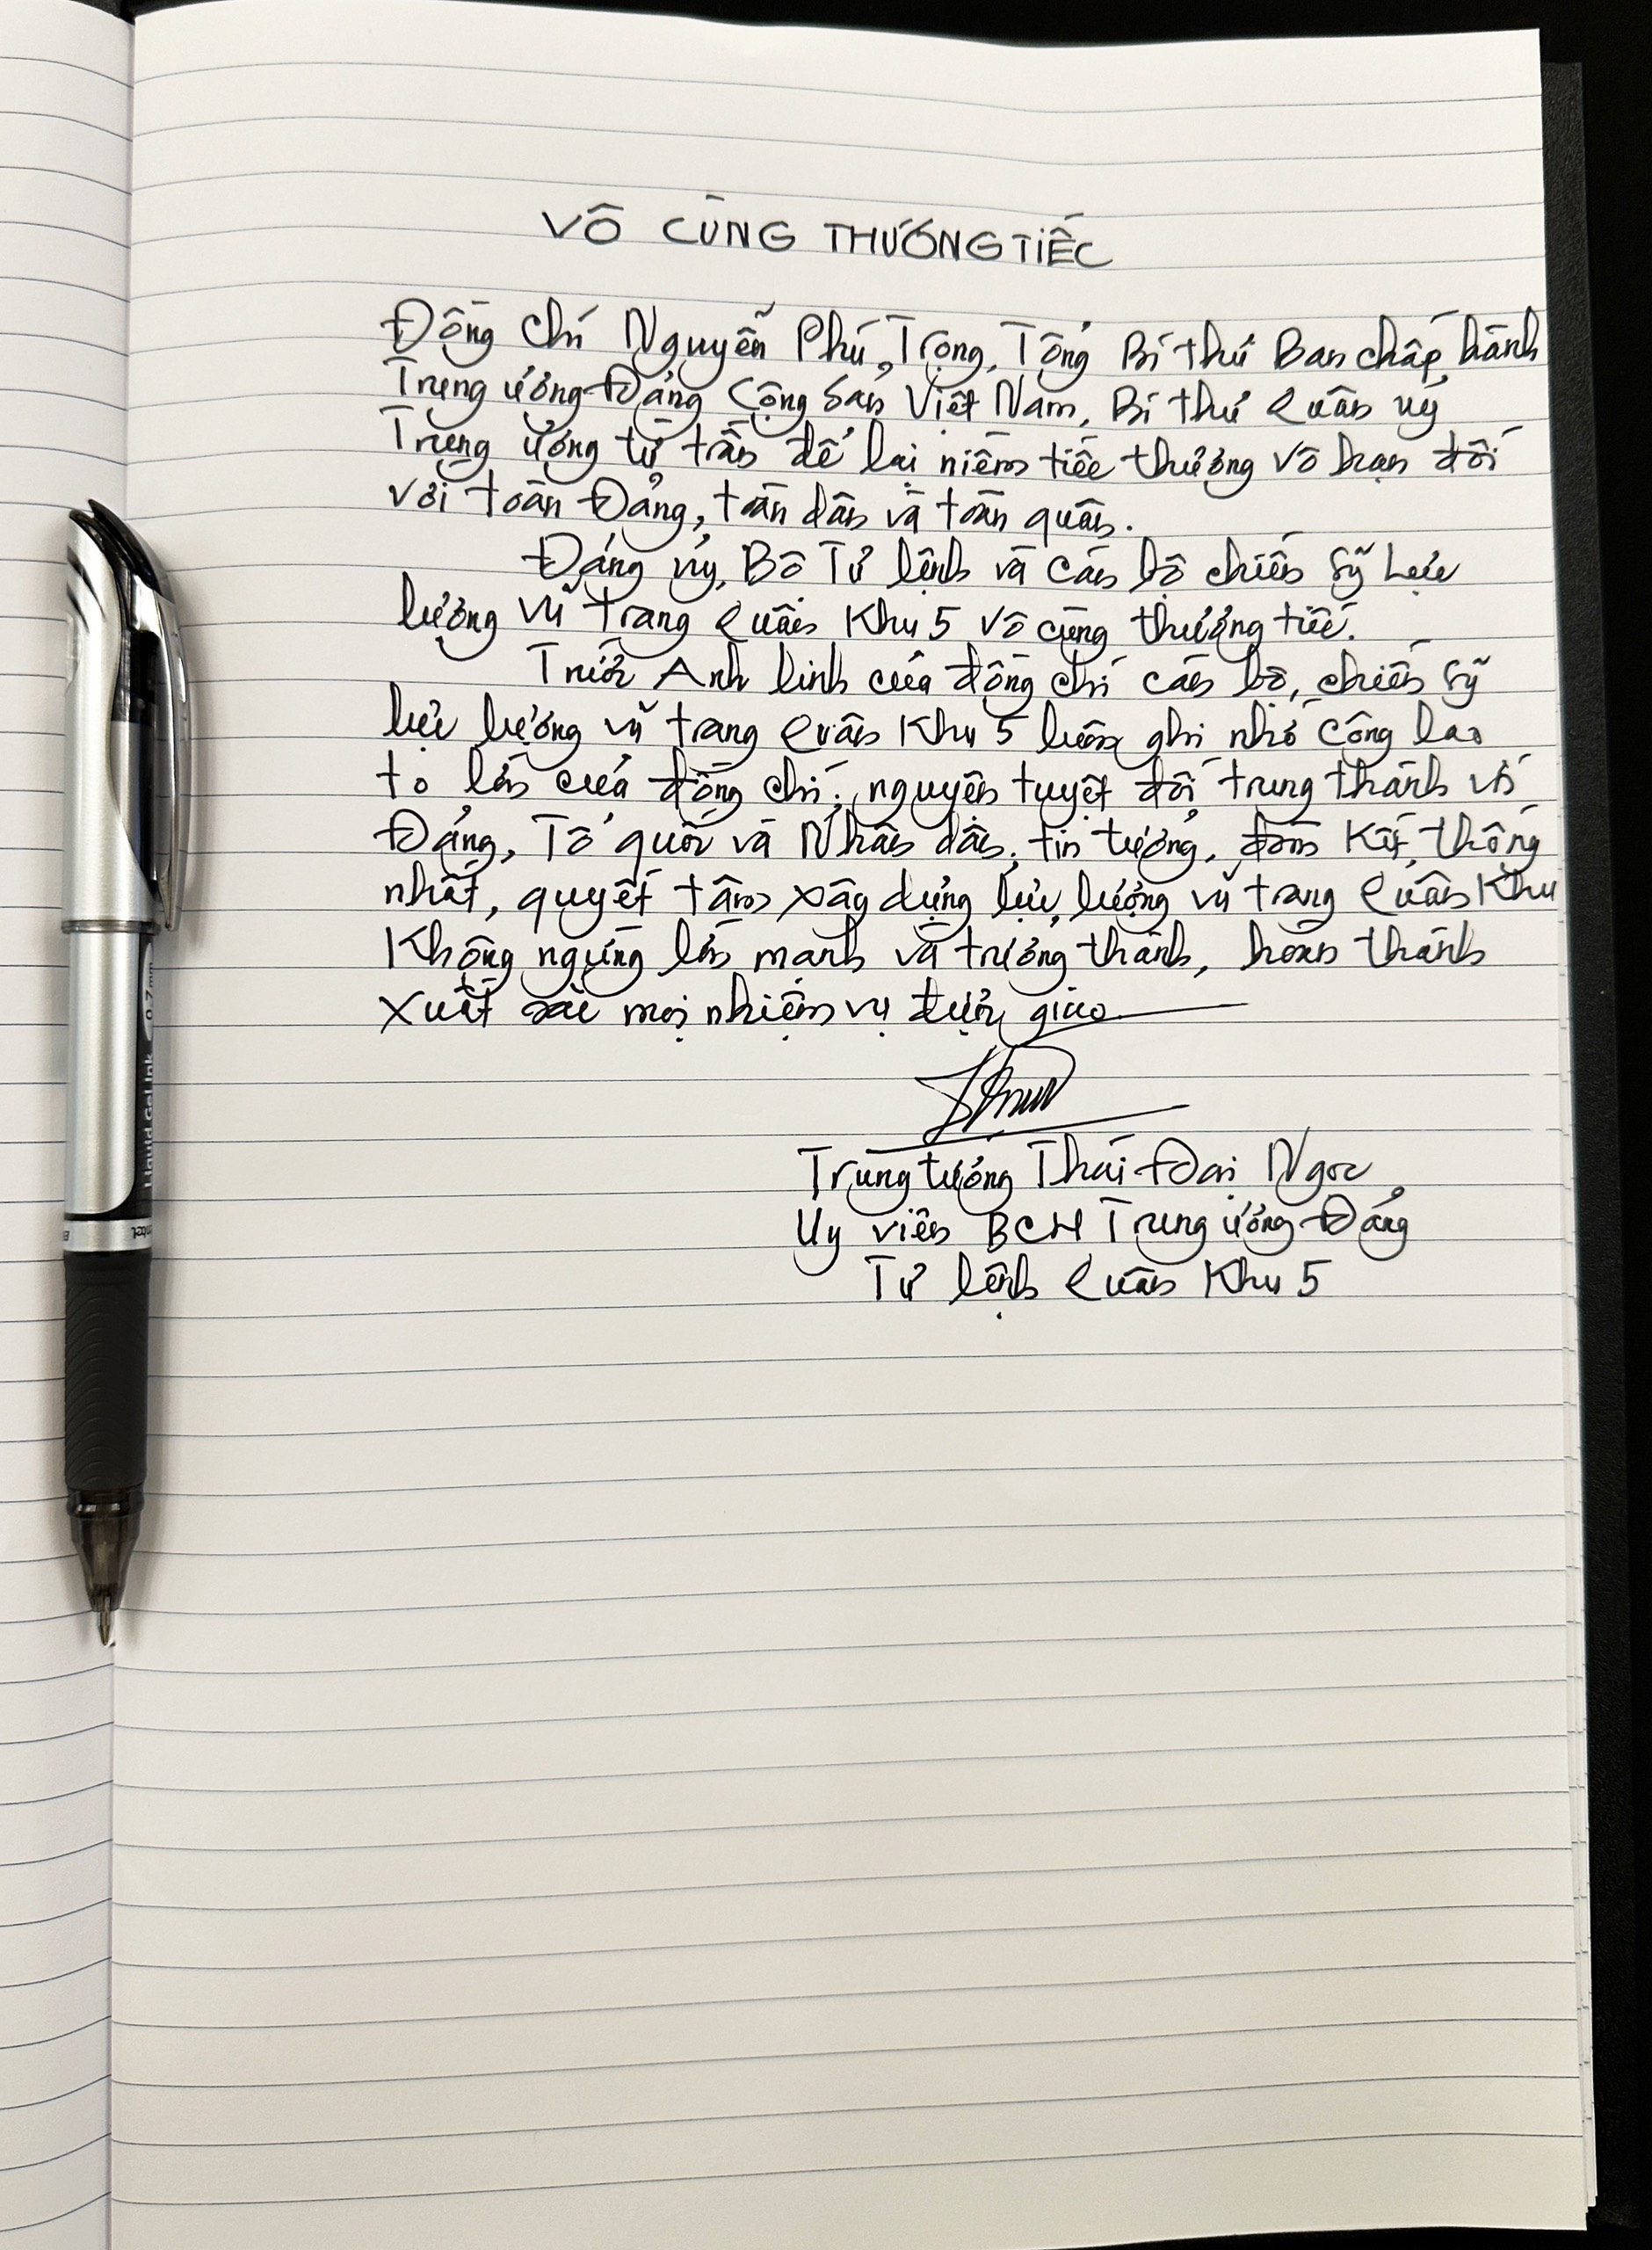 VÔ CÙNG THƯƠNG TIẾC
Đồng chí Nguyễn Phú Trọng, Tổng Bí thư Ban chấp hành
Trung ương Đảng Cộng sản Việt Nam, Bí thư Quân ủy
Trung ương từ trần để lại niềm tiếc thương vô hạn đối
với toàn Đảng, toàn dân và toàn quân.
Đảng ủy, Bộ Tư lệnh và cán bộ chiến sỹ Lực
lượng vũ trang Quân Khu 5 vô cùng thương tiếc.
Trước Anh linh của đồng chí cán bộ, chiến sỹ
lực lượng vũ trang Quân Khu 5 luôn ghi nhớ công lao
to lớn của đồng chí; nguyện tuyệt đối trung thành với
Đảng, Tổ quốc và Nhân dân, tin tưởng, đoàn Kết, thống
nhất, quyết tâm xây dựng lực lượng vũ trang Quân Khu
Không ngừng lớn mạnh và trưởng thành, hoàn thành
xuất sắc mọi nhiệm vụ được giao.
Trung tướng Thái Đại Ngọc
Ủy viên BCH Trung ương Đảng
Tư lệnh Quân Khu 5
0.7mm
Liquid Gel Ink